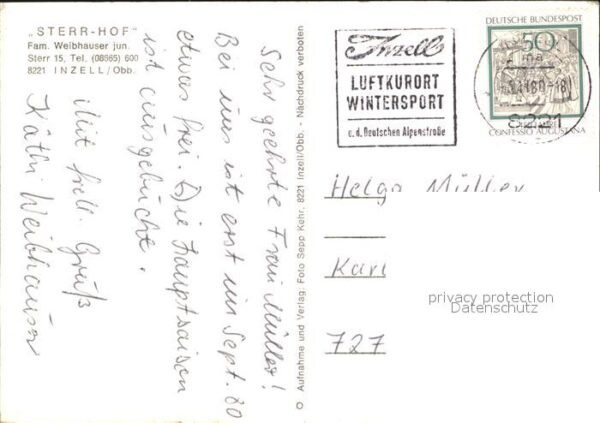 „STERR-HOF"
Fam. Weibhauser jun.
Sterr 15, Tel. (08665) 600
8221 INZELL/Obb.
Sehr geehrte Frau Müller!
Bei uns ist erst im Sept. 80
etwas frei. Die Hauptsaison
ist ausgebucht.
Mit frdl. Gruß
Käthi Weibhauser
© Aufnahme und Verlag: Foto Sepp Kehr, 8221 Inzell/Obb. - Nachdruck verboten
Inzell
LUFTKURORT
WINTERSPORT
a. d. Deutschen Alpenstraße
DEUTSCHE BUNDESPOST
50
CONFESSIO AUGUSTANA
8221
Helga Müller
Karl
727
privacy protection
Datenschutz